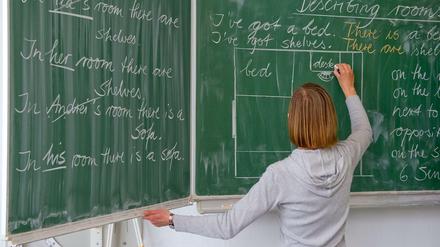 room there are
shelves
In her room there are
Shelves.
In Andrei's room there is a
Sofa.
In his room there is a sofa.
Describing room
I've got a bed. There is a be
I've got shelves. There are shel
bed
desk
on the
on
next to
opposi
on the s
6 Sin